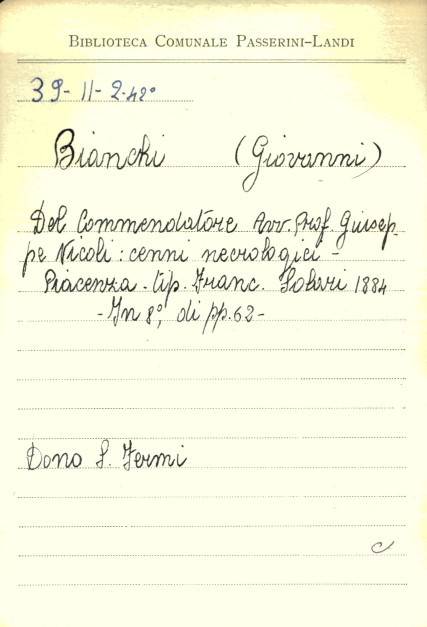 BIBLIOTECA COMUNALE PASSERINI-LANDI
39-11-2-42º
Bianchi (Giovanni)
Del Commendatore Avv. Prof. Giusep-
pe Nicoli: cenni necrologici -
Piacenza - tip. Franc. Solari 1884
- In 8º, di pp. 62 -
Dono S. Fermi
c